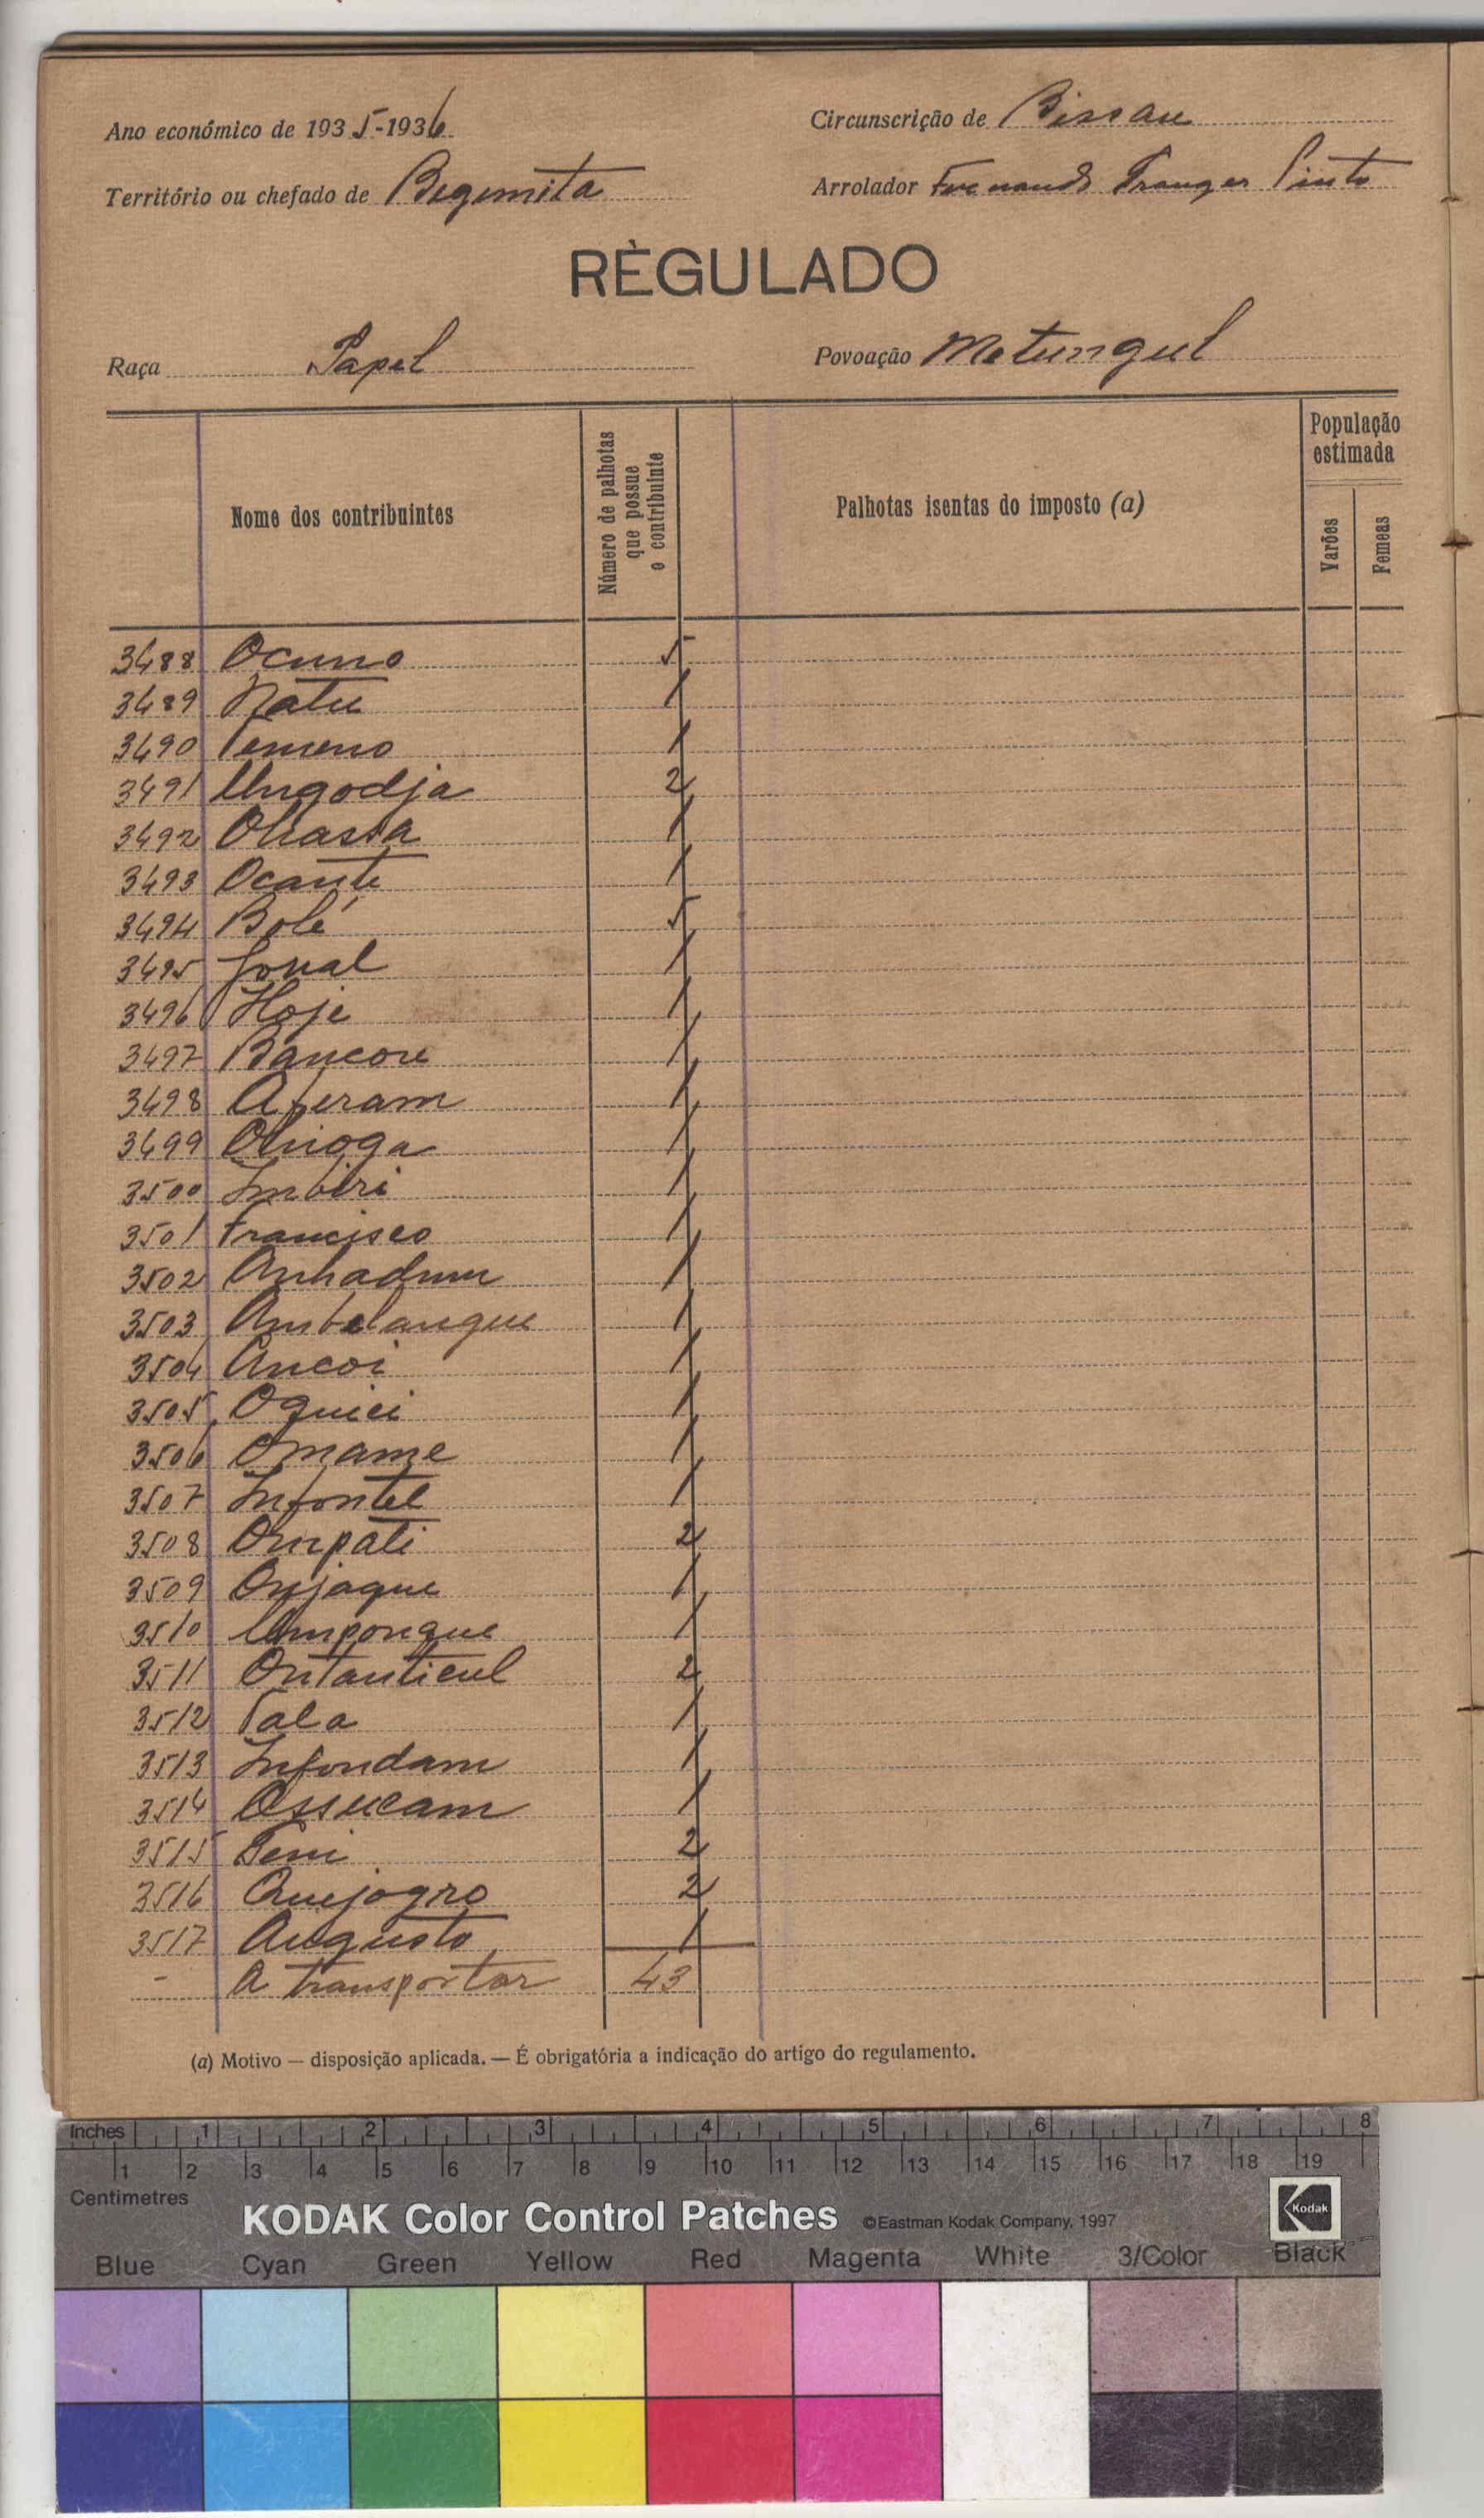 Ano económico de 1935-1936
Circunscrição de Bissau
Território ou chefado de Begemita
Arrolador Fernando Franger Pinto
RÈGULADO
Raça Papel
Povoação Metungul
Nome dos contribuintes
Número de palhotas que possue o contribuinte
Palhotas isentas do imposto (a)
População estimada
Varões
Femeas
3488 Ocuno 5
3489 Natu 1
3490 Pemeno 1
3491 Ungodja 2
3492 Ohassa 1
3493 Ocante 1
3494 Bolé 5
3495 Jonal 1
3496 Hoje 1
3497 Bancore 1
3498 Aferam 1
3499 Onioga 1
3500 Imbiri 1
3501 Francisco 1
3502 Anhadum 1
3503 Ambelangue 1
3504 Ancoi 1
3505 Oquici 1
3506 Omame 1
3507 Infontel 1
3508 Ompali 2
3509 Onjaque 1
3510 Umpongue 1
3511 Ontanticul 2
3512 Pala 1
3513 Infondam 1
3514 Ossucam 1
3515 Feni 2
3516 Quejogro 2
3517 Augusto 1
- A transportar 43
(a) Motivo — disposição aplicada. — É obrigatória a indicação do artigo do regulamento.
Inches 1 2 3 4 5 6 7 8
1 2 3 4 5 6 7 8 9 10 11 12 13 14 15 16 17 18 19
Centimetres
KODAK Color Control Patches ©Eastman Kodak Company, 1997 Kodak
Blue Cyan Green Yellow Red Magenta White 3/Color Black